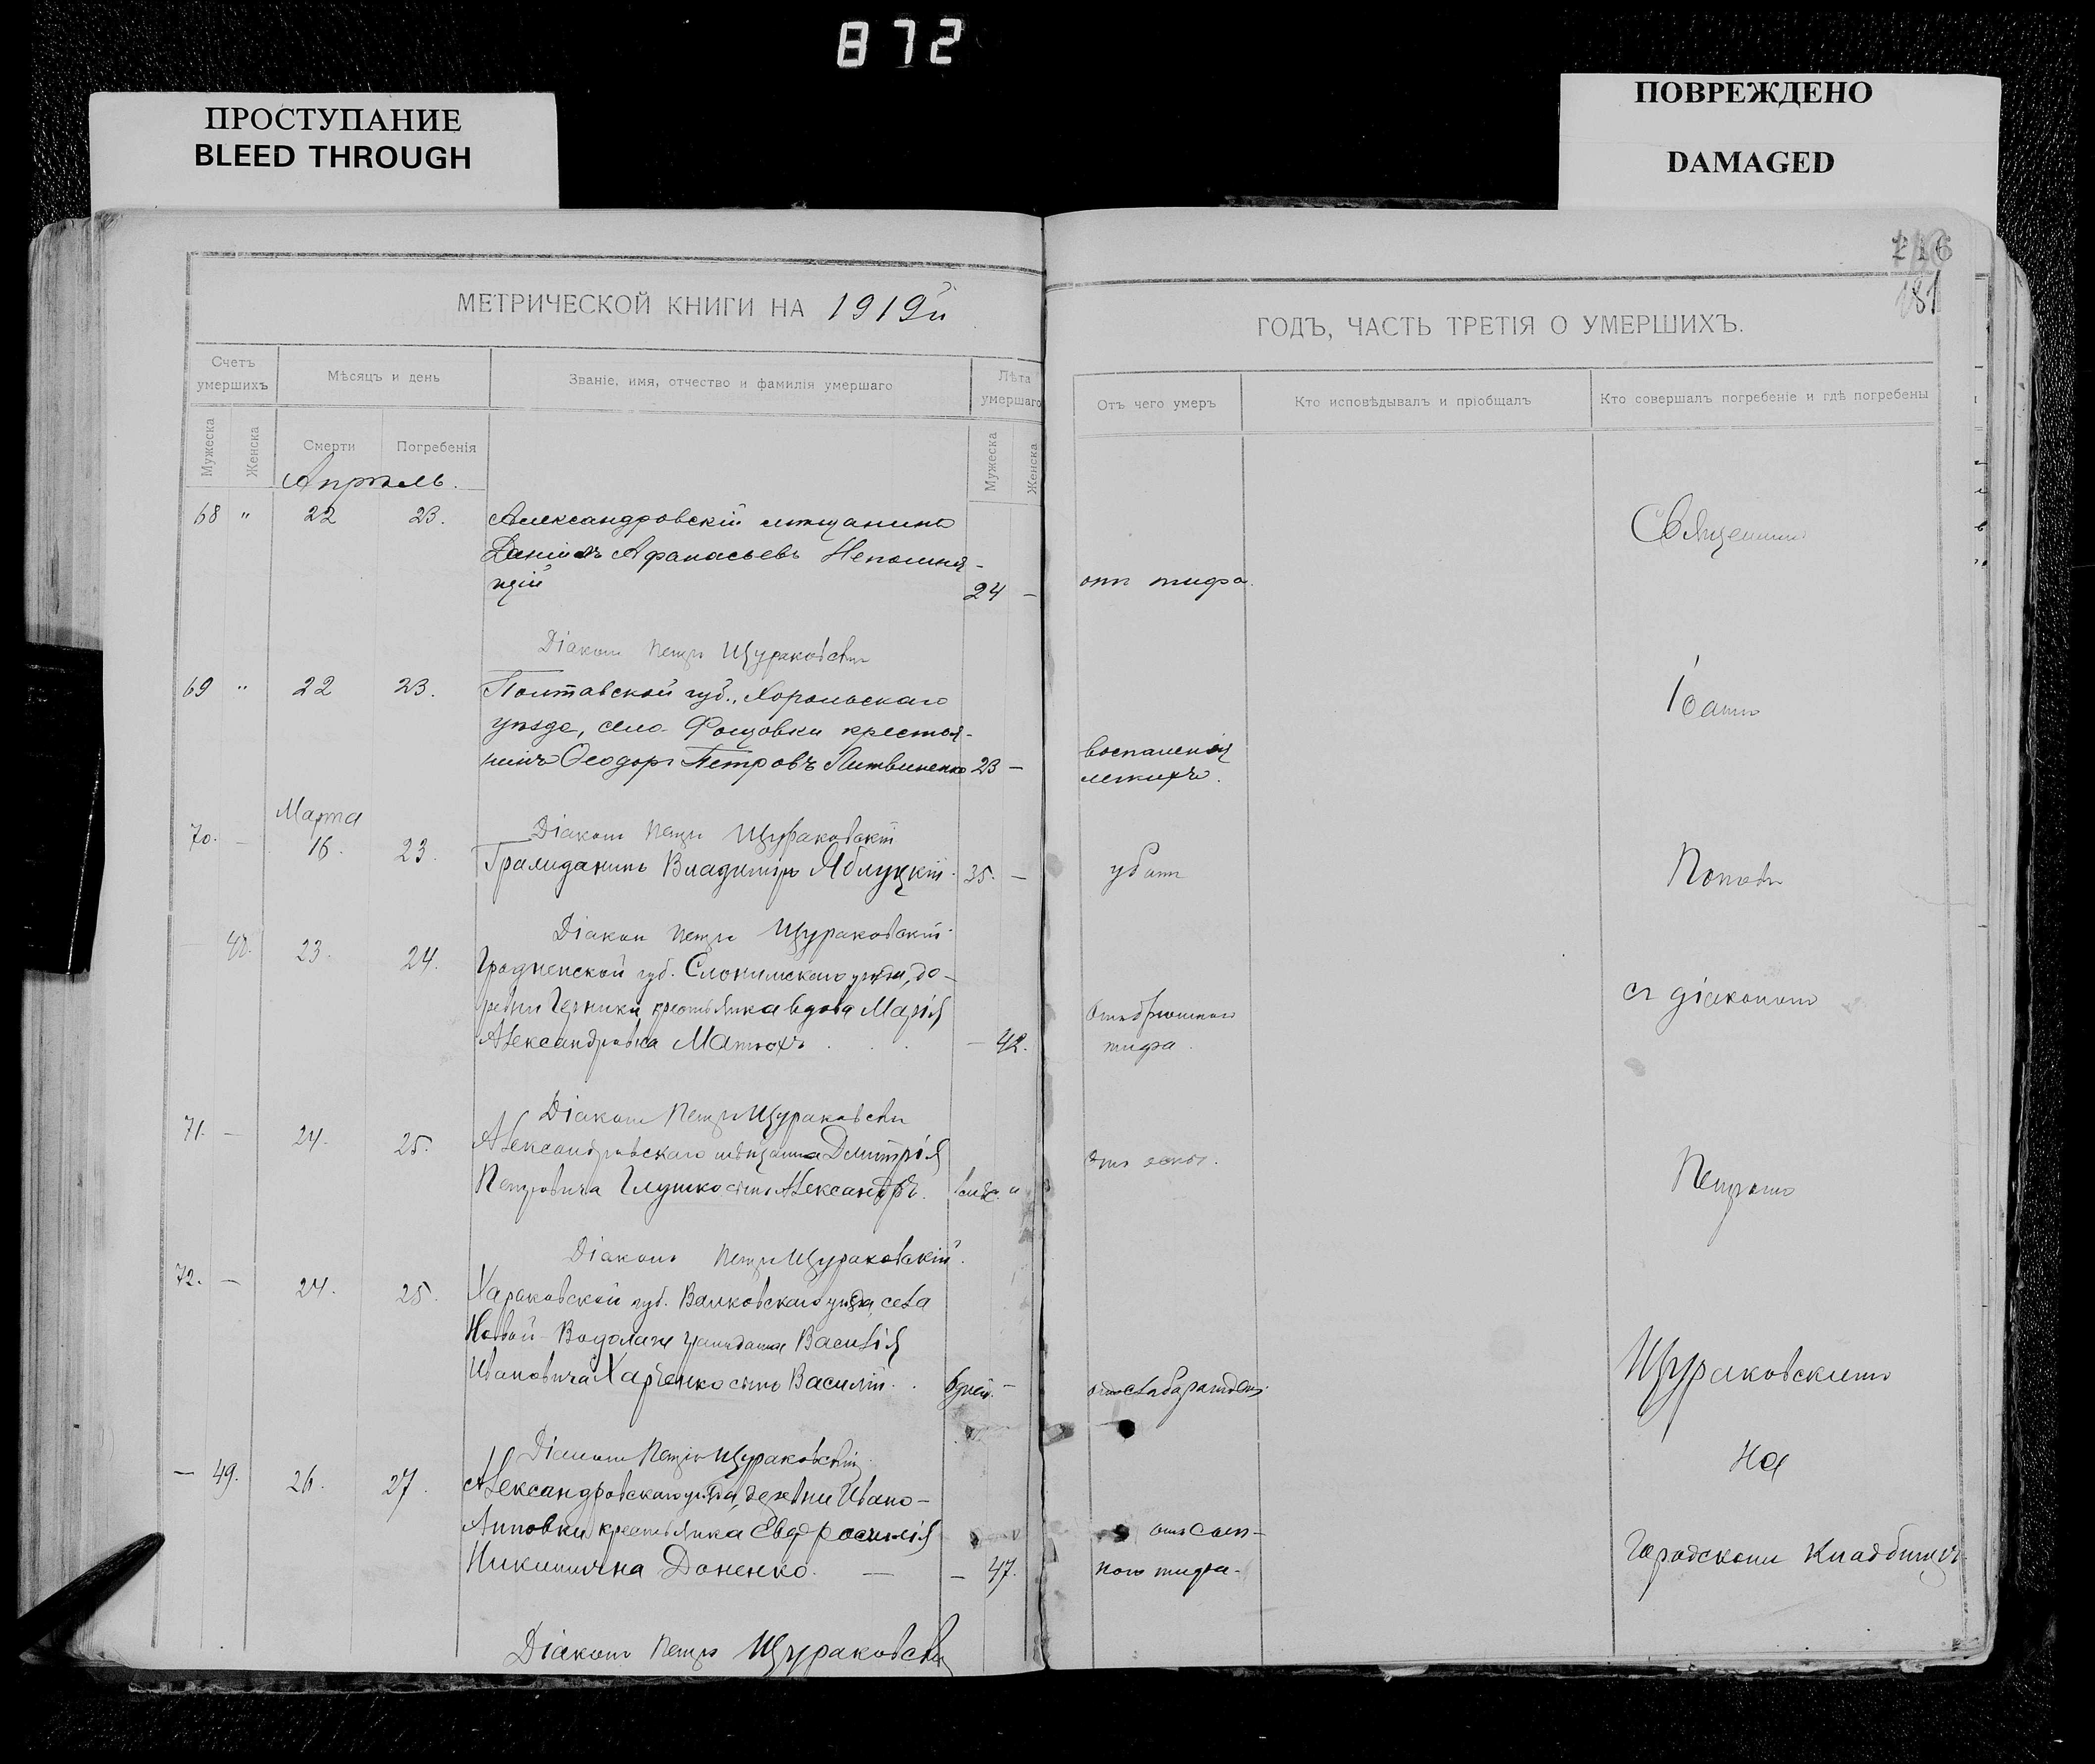 872
ПРОСТУПАНИЕ
BLEED THROUGH
ПОВРЕЖДЕНО
DAMAGED
181
МЕТРИЧЕСКОЙ КНИГИ НА 1919й
ГОДЪ, ЧАСТЬ ТРЕТІЯ О УМЕРШИХЪ.
Счетъ умершихъ
Мѣсяцъ и день
Званіе, имя, отчество и фамилія умершаго
Лѣта умершаго
Отъ чего умеръ
Кто исповѣдывалъ и пріобщалъ
Кто совершалъ погребеніе и гдѣ погребены
Мужеска
Женска
Смерти
Погребенія
Мужеска
Женска
Апрѣль.
68 " 22 23. Александровскій мѣщанинъ
Даніилъ Афанасьевъ Непомня-
щій 24 — отъ тифа.
Священникъ
Діаконъ Петръ Щураковскій
69 " 22 23. Полтавской губ., Хорольскаго
уѣзда, села
крестья-
нинъ Ѳеодоръ Петровъ Литвиненко 23 —
воспаленія
легкихъ.
Іоаннъ
Діаконъ Петръ Щураковскій
Марта
70. — 16. 23. Гражданинъ Владиміръ Яблуцкій. 35. — убитъ
Поповъ
Діакон Петръ Щураковскій.
48. 23. 24. Гродненской губ. Слонимскаго уѣзда, де-
ревни
крестьянка вдова Марія
Александровна Матюхъ — 42.
Отъ брюшного
тифа.
съ діакономъ
Діаконъ Петръ Щураковскій
71. — 24. 25. Александровскаго мѣщанина Димитрія
Петровича Глушко сынъ Александръ.
Петромъ
Діаконъ Петръ Щураковскій.
72. — 24. 25. Харьковской губ. Валковскаго уѣзда, села
Новой-Водолаги гражданина Василія
Ивановича Харченко сынъ Василій. 6 дней. —
Щураковскимъ
Діаконъ Петръ Щураковскій.
— 49. 26. 27. Александровскаго уѣзда, деревни Ивано-
Анновки крестьянка Евфросинія
Никитична Доненко. — — 47.
отъ сып-
ного тифа.
на
Городскомъ Кладбищѣ.
Діаконъ Петръ Щураковскій